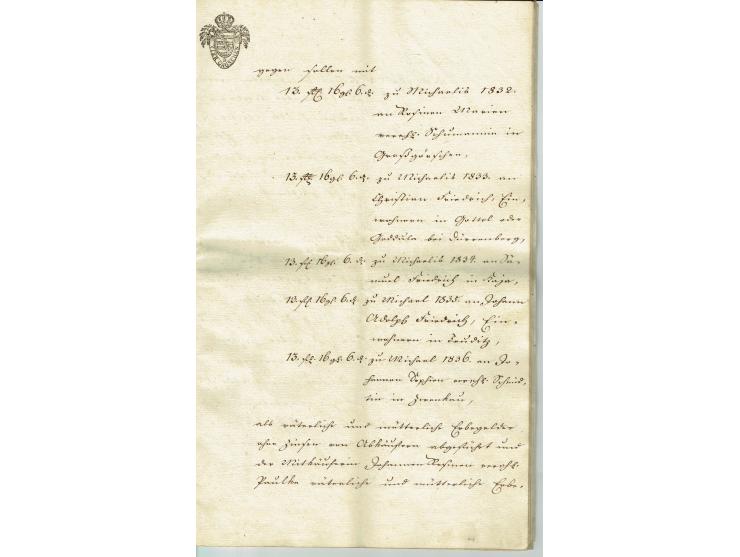 gegen sollen mit
13. rℓ. 16 gl. 6. ₰. zu Michaelis 1832.
an Rosinen Marien
verehl. Schumannin in
Großgörschen,
13. rℓ. 16 gl. 6. ₰. zu Michaelis 1833. an
Christian Friedrich, Ein-
wohnern in Gottel oder
Goddula bei Dürrenberg,
13. rℓ. 16 gl. 6. ₰. zu Michaelis 1834. an Sa-
muel Friedrich in Kaja,
13. rℓ. 16 gl. 6 ₰. zu Michael 1835. an Johann
Adolph Friedrich, Ein-
wohnern in Teuditz,
13. rℓ. 16 gl. 6. ₰. zu Michael 1836. an Jo-
hannen Sophien verehl. Schmid-
tin in Zwenkau,
als väterliche und mütterliche Erbegelder
ohne Zinsen von Abkäufern abgeführt und
der Mitkäuferin Johannen Rosinen verehl.
Paulke väterliche und mütterliche Erbe-